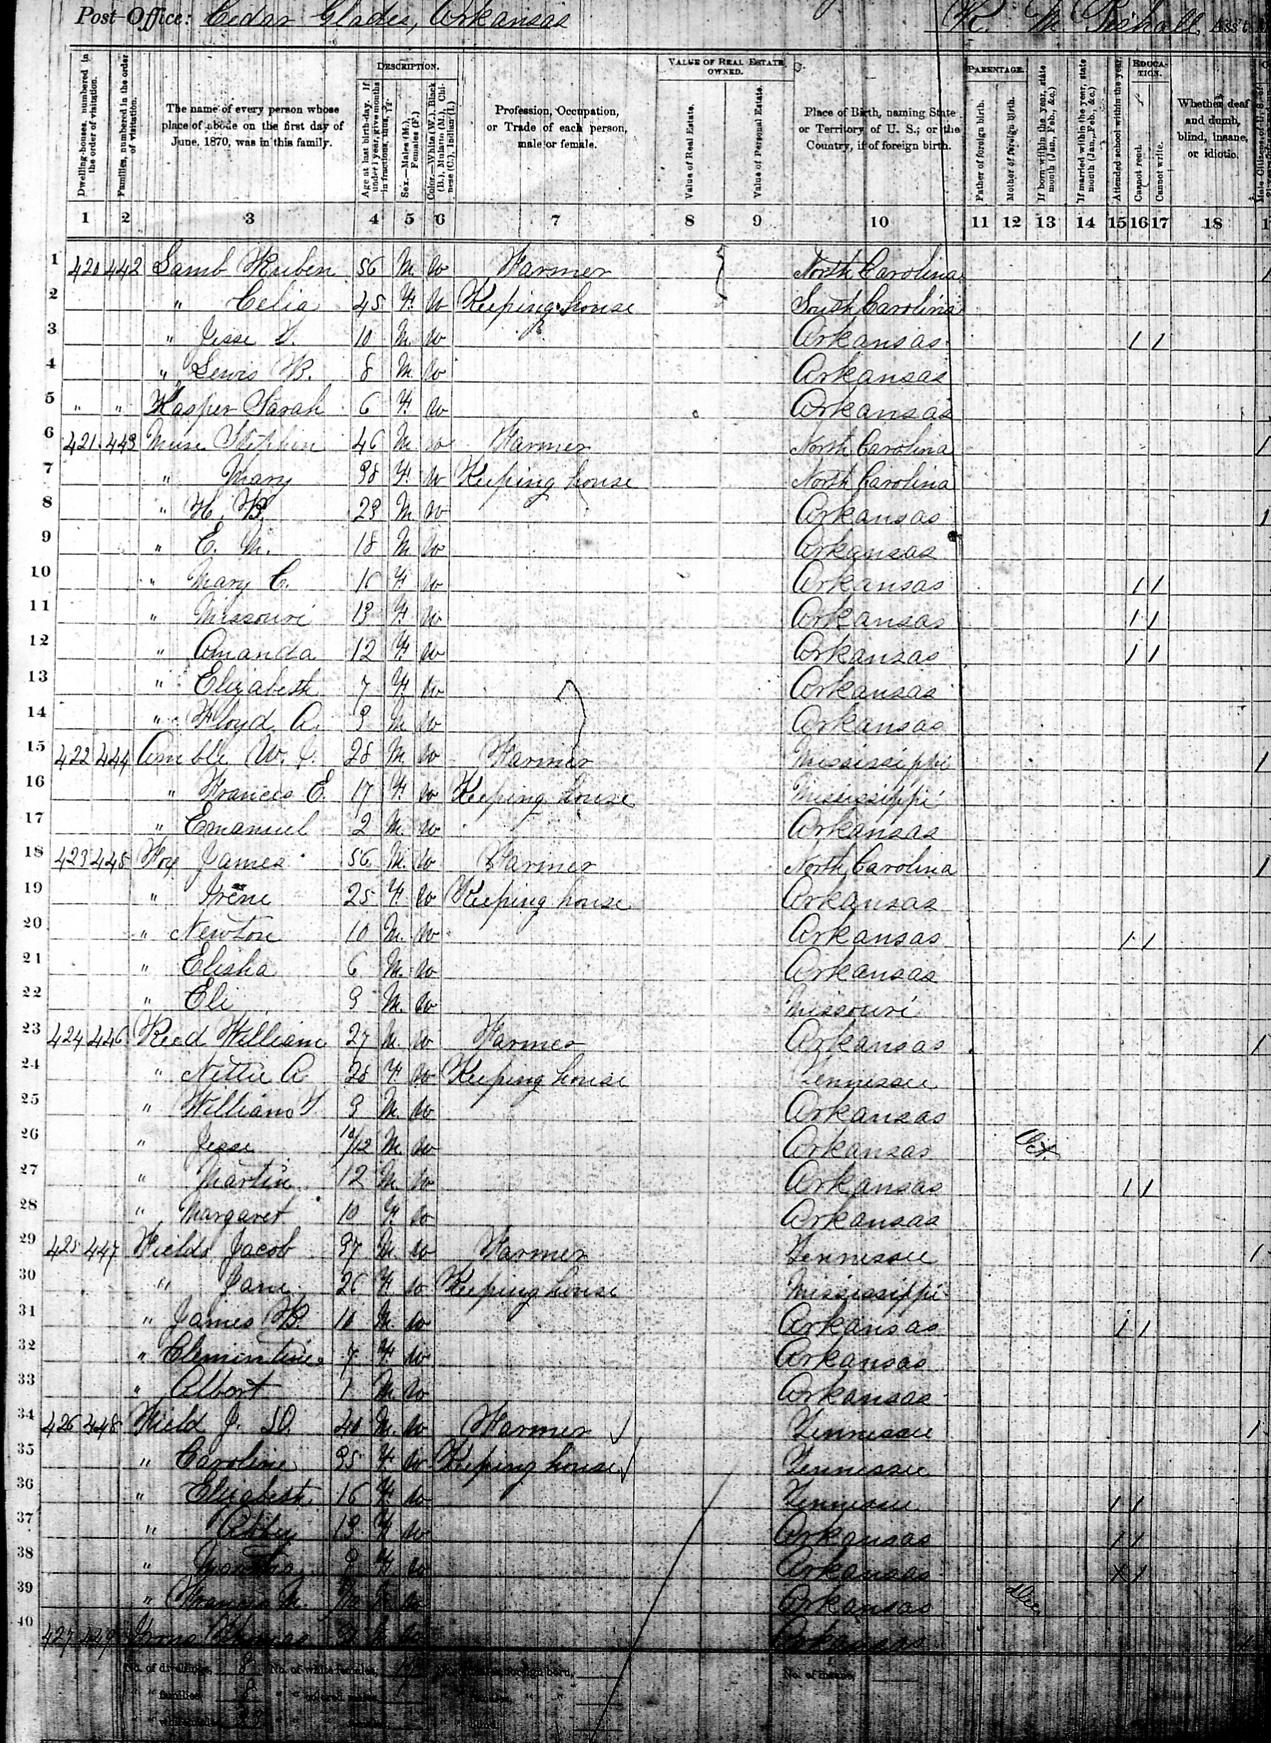 Post-Office: Cedar Glades, Arkansas K. M. Ass't
DESCRIPTION. VALUE OF REAL ESTATE OWNED. PARENTAGE. EDUCATION.
Dwelling-houses, numbered in the order of visitation. Families, numbered in the order of visitation. The name of every person whose place of abode on the first day of June, 1870, was in this family. Age at last birth-day. If under 1 year, give months in fractions, thus, Sex.—Males (M.), Females (F.) Color.—White (W.), Black (B.), Mulatto (M.), Chinese (C.), Indian (I.) Profession, Occupation, or Trade of each person, male or female. Value of Real Estate. Value of Personal Estate. Place of Birth, naming State or Territory of U. S.; or the Country, if of foreign birth. Father of foreign birth. Mother of foreign birth. If born within the year, state month (Jan., Feb., &c.) If married within the year, state month (Jan., Feb., &c.) Attended school within the year. Cannot read. Cannot write. Whether deaf and dumb, blind, insane, or idiotic.
1 2 3 4 5 6 7 8 9 10 11 12 13 14 15 16 17 18
1 420 442 Lamb Ruben 56 M W Farmer North Carolina 1
2 " Celia 45 F W Keeping house South Carolina
3 " Jesse 10 M W Arkansas / /
4 " Lewis B. 8 M W Arkansas
5 " " Hasper Sarah 6 F W Arkansas
6 421 443 Muse Stephen 46 M W Farmer North Carolina 1
7 " Mary 38 F W Keeping house North Carolina
8 " H. B. 23 M W Arkansas 1
9 " E. M. 18 M W Arkansas
10 " Mary C. 16 F W Arkansas / /
11 " Missouri 13 F W Arkansas / /
12 " Amanda 12 F W Arkansas / /
13 " Elizabeth 7 F W Arkansas
14 " Floyd A. 3 M W Arkansas
15 422 444 Amble W. 28 M W Farmer Mississippi 1
16 " Frances E. 17 F W Keeping house Mississippi
17 " Emanuel 2 M W Arkansas
18 423 445 Foy James 56 M W Farmer North Carolina 1
19 " Irene 25 F W Keeping house Arkansas
20 " Newton 10 M W Arkansas / /
21 " Elisha 6 M W Arkansas
22 " Eli 3 M W Missouri
23 424 446 Reed William 27 M W Farmer Arkansas 1
24 " Nettie A. 28 F W Keeping house Tennessee
25 " William 3 M W Arkansas
26 " Jesse /12 M W Arkansas Oct.
27 " Martin 12 M W Arkansas / /
28 " Margaret 10 F W Arkansas
29 425 447 Fields Jacob 37 M W Farmer Tennessee 1
30 " Jane 26 F W Keeping house Mississippi
31 " James B. 10 M W Arkansas / /
32 " Clementine 7 F W Arkansas
33 " Albert 1 M W Arkansas
34 426 448 Field J. D. 40 M W Farmer Tennessee 1
35 " Caroline 35 F W Keeping house Tennessee
36 " Elizabeth 16 F W Tennessee / /
37 " Abby 13 F W Arkansas / /
38 " Martha 9 F W Arkansas / /
39 " Francis M. W Arkansas
40 427 449 Thomas W Arkansas
No. of dwellings, 8 No. of white females, 17 No. of insane,
" " families, 8